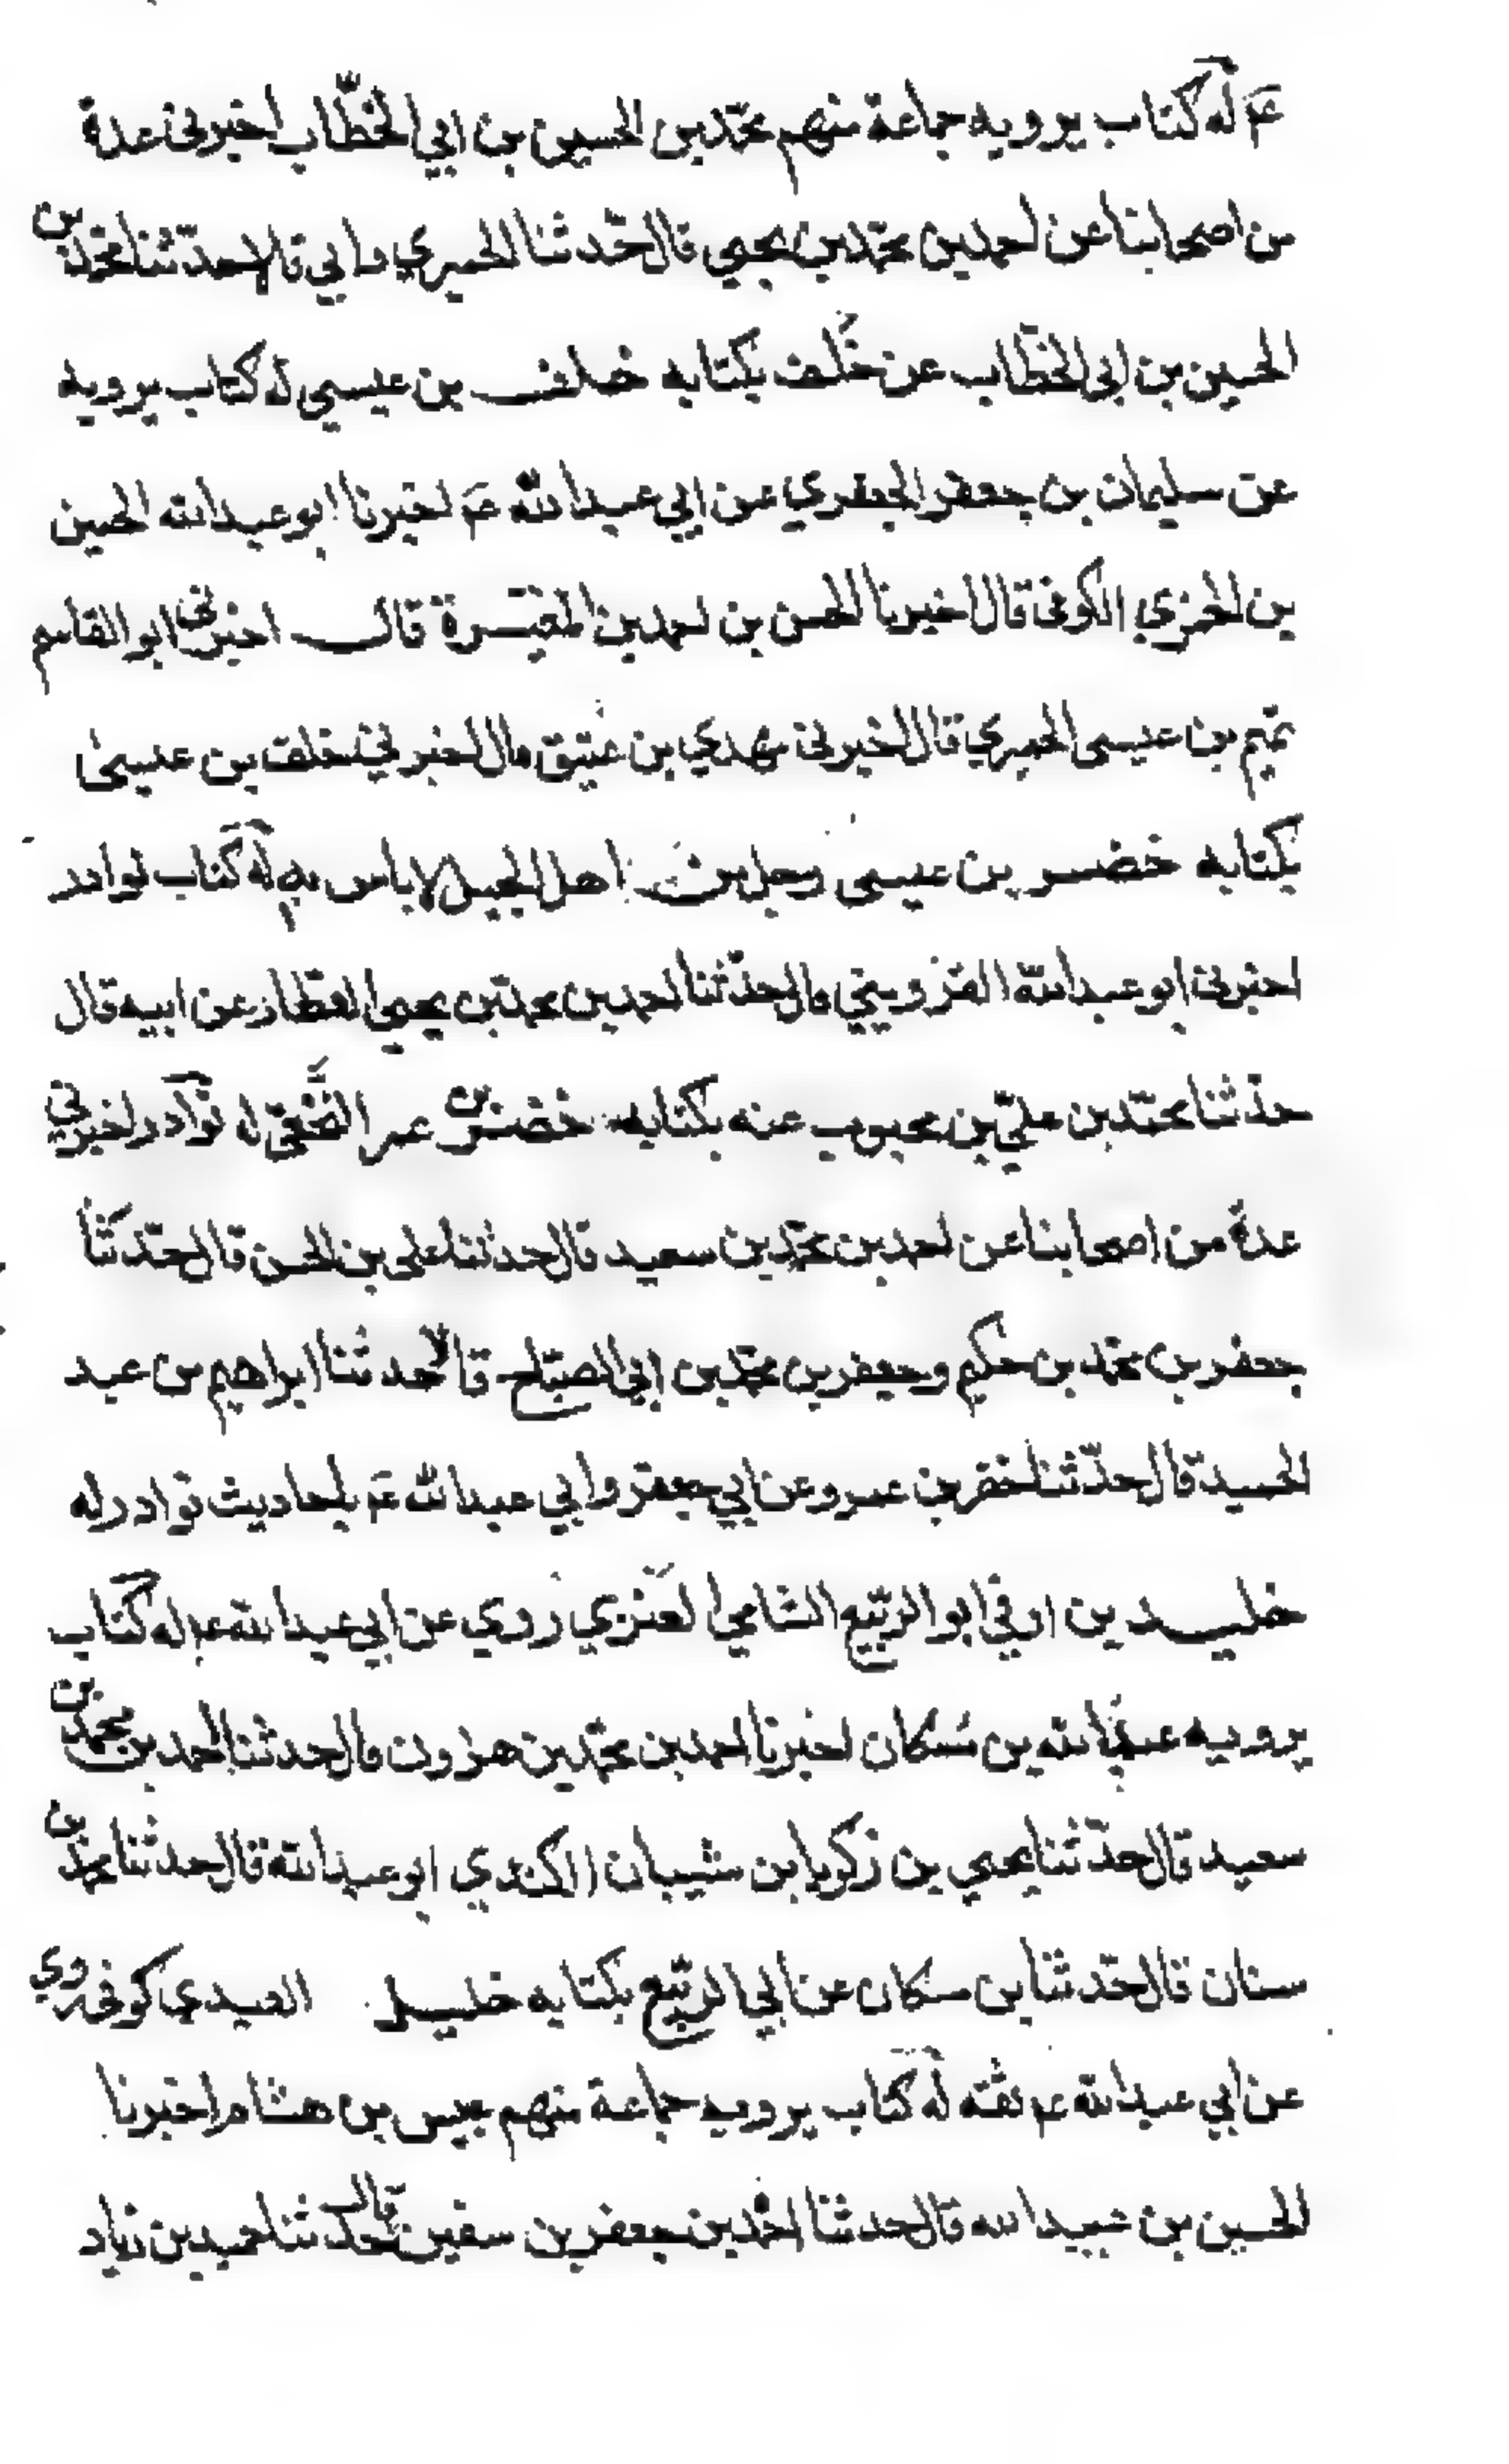 عم له كتاب يرويه جماعة منهم محمّد بن الحسين بن ابي الخطّاب اخبرنى عدة
من اصحابنا عن احمد بن محمّد بن يحيى قال حدّثنا الحميري وابي قالا حدّثنا محمّد بن
الحسين بن ابى الخطّاب عن خَلف بكتابه خلف بن عيسى له كتاب يرويه
عن سليمان بن جعفر الجعفري عن ابي عبدالله عم اخبرنا ابو عبدالله الحسين
بن الخمري الكوفى قال اخبرنا الحسن بن احمد بن المغيـرة قال اخبرنى ابو القاسم
تميم بن عيسى الحميري قال اخبرنى مهدي بن عتيق قال اخبرني خلف بن عيسىٰ
بكتابه خضر بن عيسى رجل من اهل الجبل لاباس به له كتاب نوادر
اخبرنى ابو عبدالله القزويني قال حدّثنا احمد بن محمّد بن يحيى العطار عن ابيه قال
حدّثنا محمّد بن عليّ بن محبوب عنه بكتابه خضر بن عمر النَّخَعيّ له نوادر اخبرني
عدة من اصحابنا عن احمد بن محمّد بن سعيد قال حدثنا على بن الحسن قال حدّثنا
جعفر بن محمّد بن حكيم وجعفر بن محمّد بن ابي الصبّاح قالا حدثنا ابراهيم بن عبد
الحميد قال حدّثنا خضر بن عمرو عن ابي جعفر وابي عبدالله عم باحاديث نوادر له
خليـد بن اوفي ابو الربيع الشامي العَنَزي روي عن ابي عبدالله عم له كتاب
يرويه عبدالله بن مُسكان اخبرنا احمد بن محمّد بن هرون قال حدثنا احمد بن محمّد بن
سعيد قال حدّثنا يحيي بن زكريا بن شيبان الكندي ابو عبدالله قال حدثنا محمّد بن
سنان قال حدّثنا بن مسكان عن ابي الربيع بكتابه خليـل العبدي كوفى روي
عن ابي عبدالله عم ثقة له كتاب يرويه جماعة منهم عبيس بن هشام اخبرنا
الحسين بن عبيدالله قال حدثنا احمد بن جعفر بن سفين قال حدّثنا حميد بن زياد